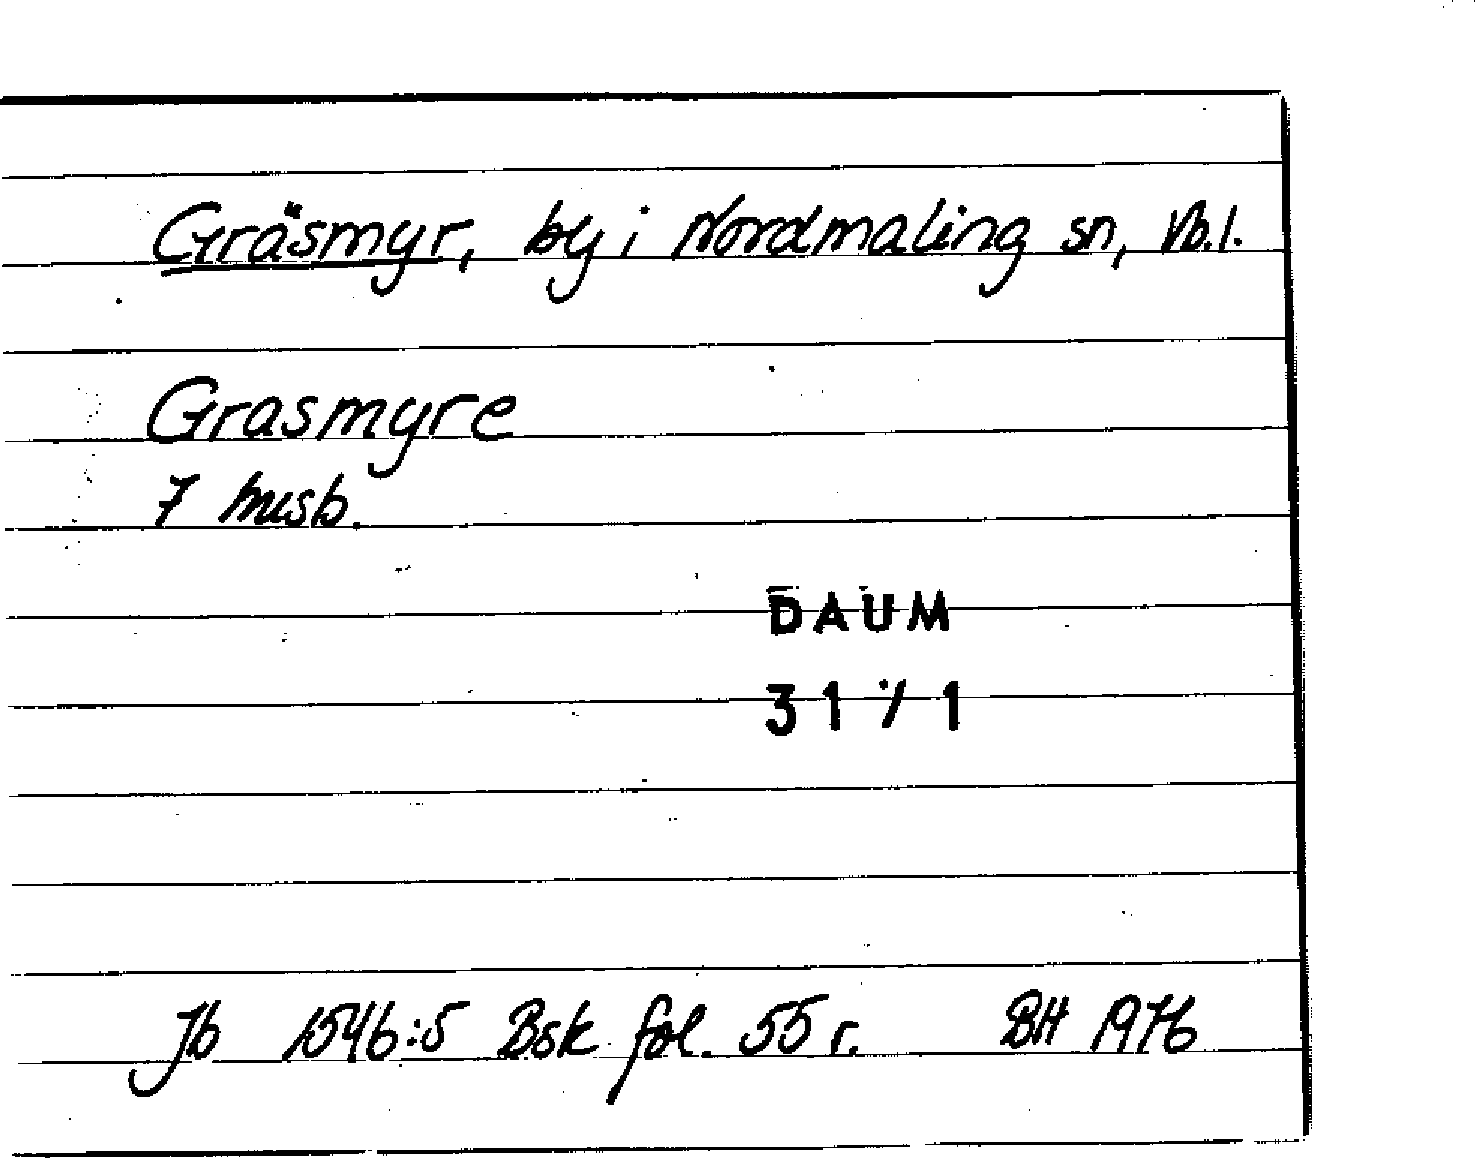 Gräsmyr, by i Nordmaling sn, Vb.l.
Grasmyre
7 husb.
DAUM
31 / 1
Jb 1546:5 Bsk fol. 55 r. BH 1976